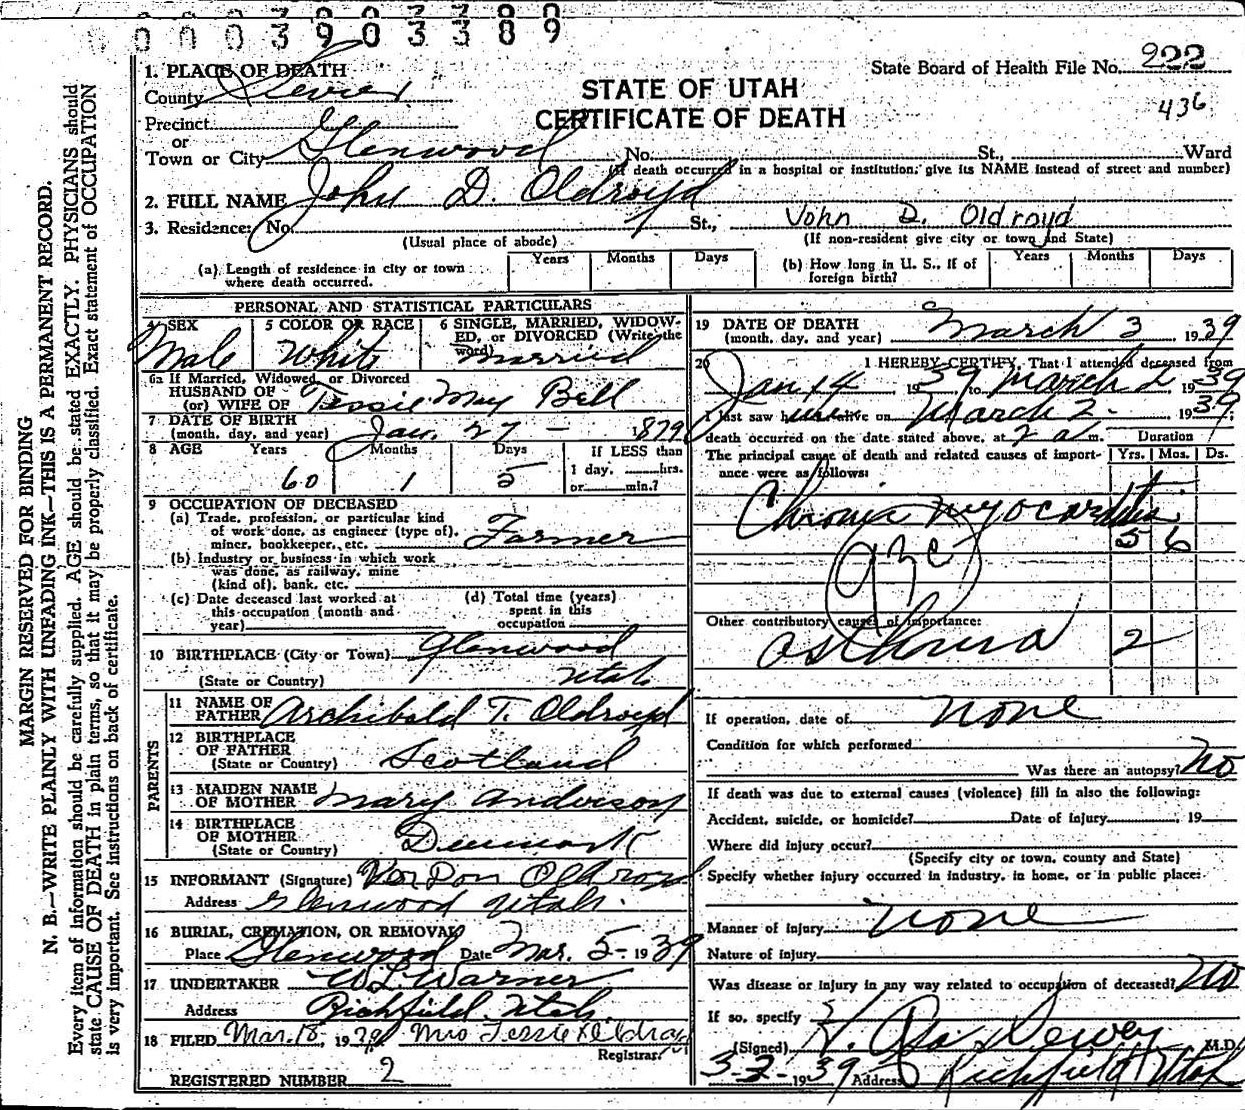 0003903389
1. PLACE OF DEATH
County Sevier
State Board of Health File No. 222
436
STATE OF UTAH
CERTIFICATE OF DEATH
Precinct
or
Town or City Glenwood No. St., Ward
(If death occurred in a hospital or institution, give its NAME instead of street and number)
2. FULL NAME John D. Oldroyd
3. Residence: No. St., John D. Oldroyd
(Usual place of abode) (If non-resident give city or town and State)
(a) Length of residence in city or town where death occurred. Years Months Days
(b) How long in U. S., if of foreign birth? Years Months Days
MARGIN RESERVED FOR BINDING
N. B.—WRITE PLAINLY WITH UNFADING INK—THIS IS A PERMANENT RECORD.
Every item of information should be carefully supplied. AGE should be stated EXACTLY. PHYSICIANS should
state CAUSE OF DEATH in plain terms, so that it may be properly classified. Exact statement of OCCUPATION
is very important. See instructions on back of certificate.
PERSONAL AND STATISTICAL PARTICULARS
4 SEX Male
5 COLOR OR RACE White
6 SINGLE, MARRIED, WIDOWED, or DIVORCED (Write the word) Married
6a If Married, Widowed, or Divorced
HUSBAND OF
(or) WIFE OF Tessie May Bell
7 DATE OF BIRTH
(month, day, and year) Jan. 27 - 1879
8 AGE Years Months Days If LESS than
60 1 5 1 day, hrs.
or min.?
9 OCCUPATION OF DECEASED
(a) Trade, profession, or particular kind
of work done, as engineer (type of),
miner, bookkeeper, etc. Farmer
(b) Industry or business in which work
was done, as railway, mine
(kind of), bank, etc.
(c) Date deceased last worked at
this occupation (month and
year)
(d) Total time (years)
spent in this
occupation
10 BIRTHPLACE (City or Town) Glenwood
(State or Country) Utah
PARENTS
11 NAME OF
FATHER Archibald T. Oldroyd
12 BIRTHPLACE
OF FATHER
(State or Country) Scotland
13 MAIDEN NAME
OF MOTHER Mary Anderson
14 BIRTHPLACE
OF MOTHER
(State or Country) Denmark
15 INFORMANT (Signature) VerDon Oldroyd
Address Glenwood Utah.
16 BURIAL, CREMATION, OR REMOVAL
Place Glenwood Date Mar. 5- 1939
17 UNDERTAKER W.L. Warner
Address Richfield, Utah.
18 FILED Mar. 18, 1939 Mrs Tessie Oldroyd
Registrar
REGISTERED NUMBER 2
19 DATE OF DEATH
(month, day, and year) March 3 1939
20 I HEREBY CERTIFY, That I attended deceased from
Jan 14 1939 to March 2 1939
I last saw him alive on March 2- 1939;
death occurred on the date stated above, at 2 a m.
The principal cause of death and related causes of importance were as follows:
Duration
Yrs. Mos. Ds.
Chronic Myocarditis
5 6
93c
Other contributory causes of importance:
asthma 2
If operation, date of none
Condition for which performed
Was there an autopsy? No
If death was due to external causes (violence) fill in also the following:
Accident, suicide, or homicide? Date of injury, 19
Where did injury occur?
(Specify city or town, county and State)
Specify whether injury occurred in industry, in home, or in public place:
Manner of injury none
Nature of injury
Was disease or injury in any way related to occupation of deceased? No
If so, specify
(Signed) Dewey M.D.
3-2-1939 Address Richfield Utah